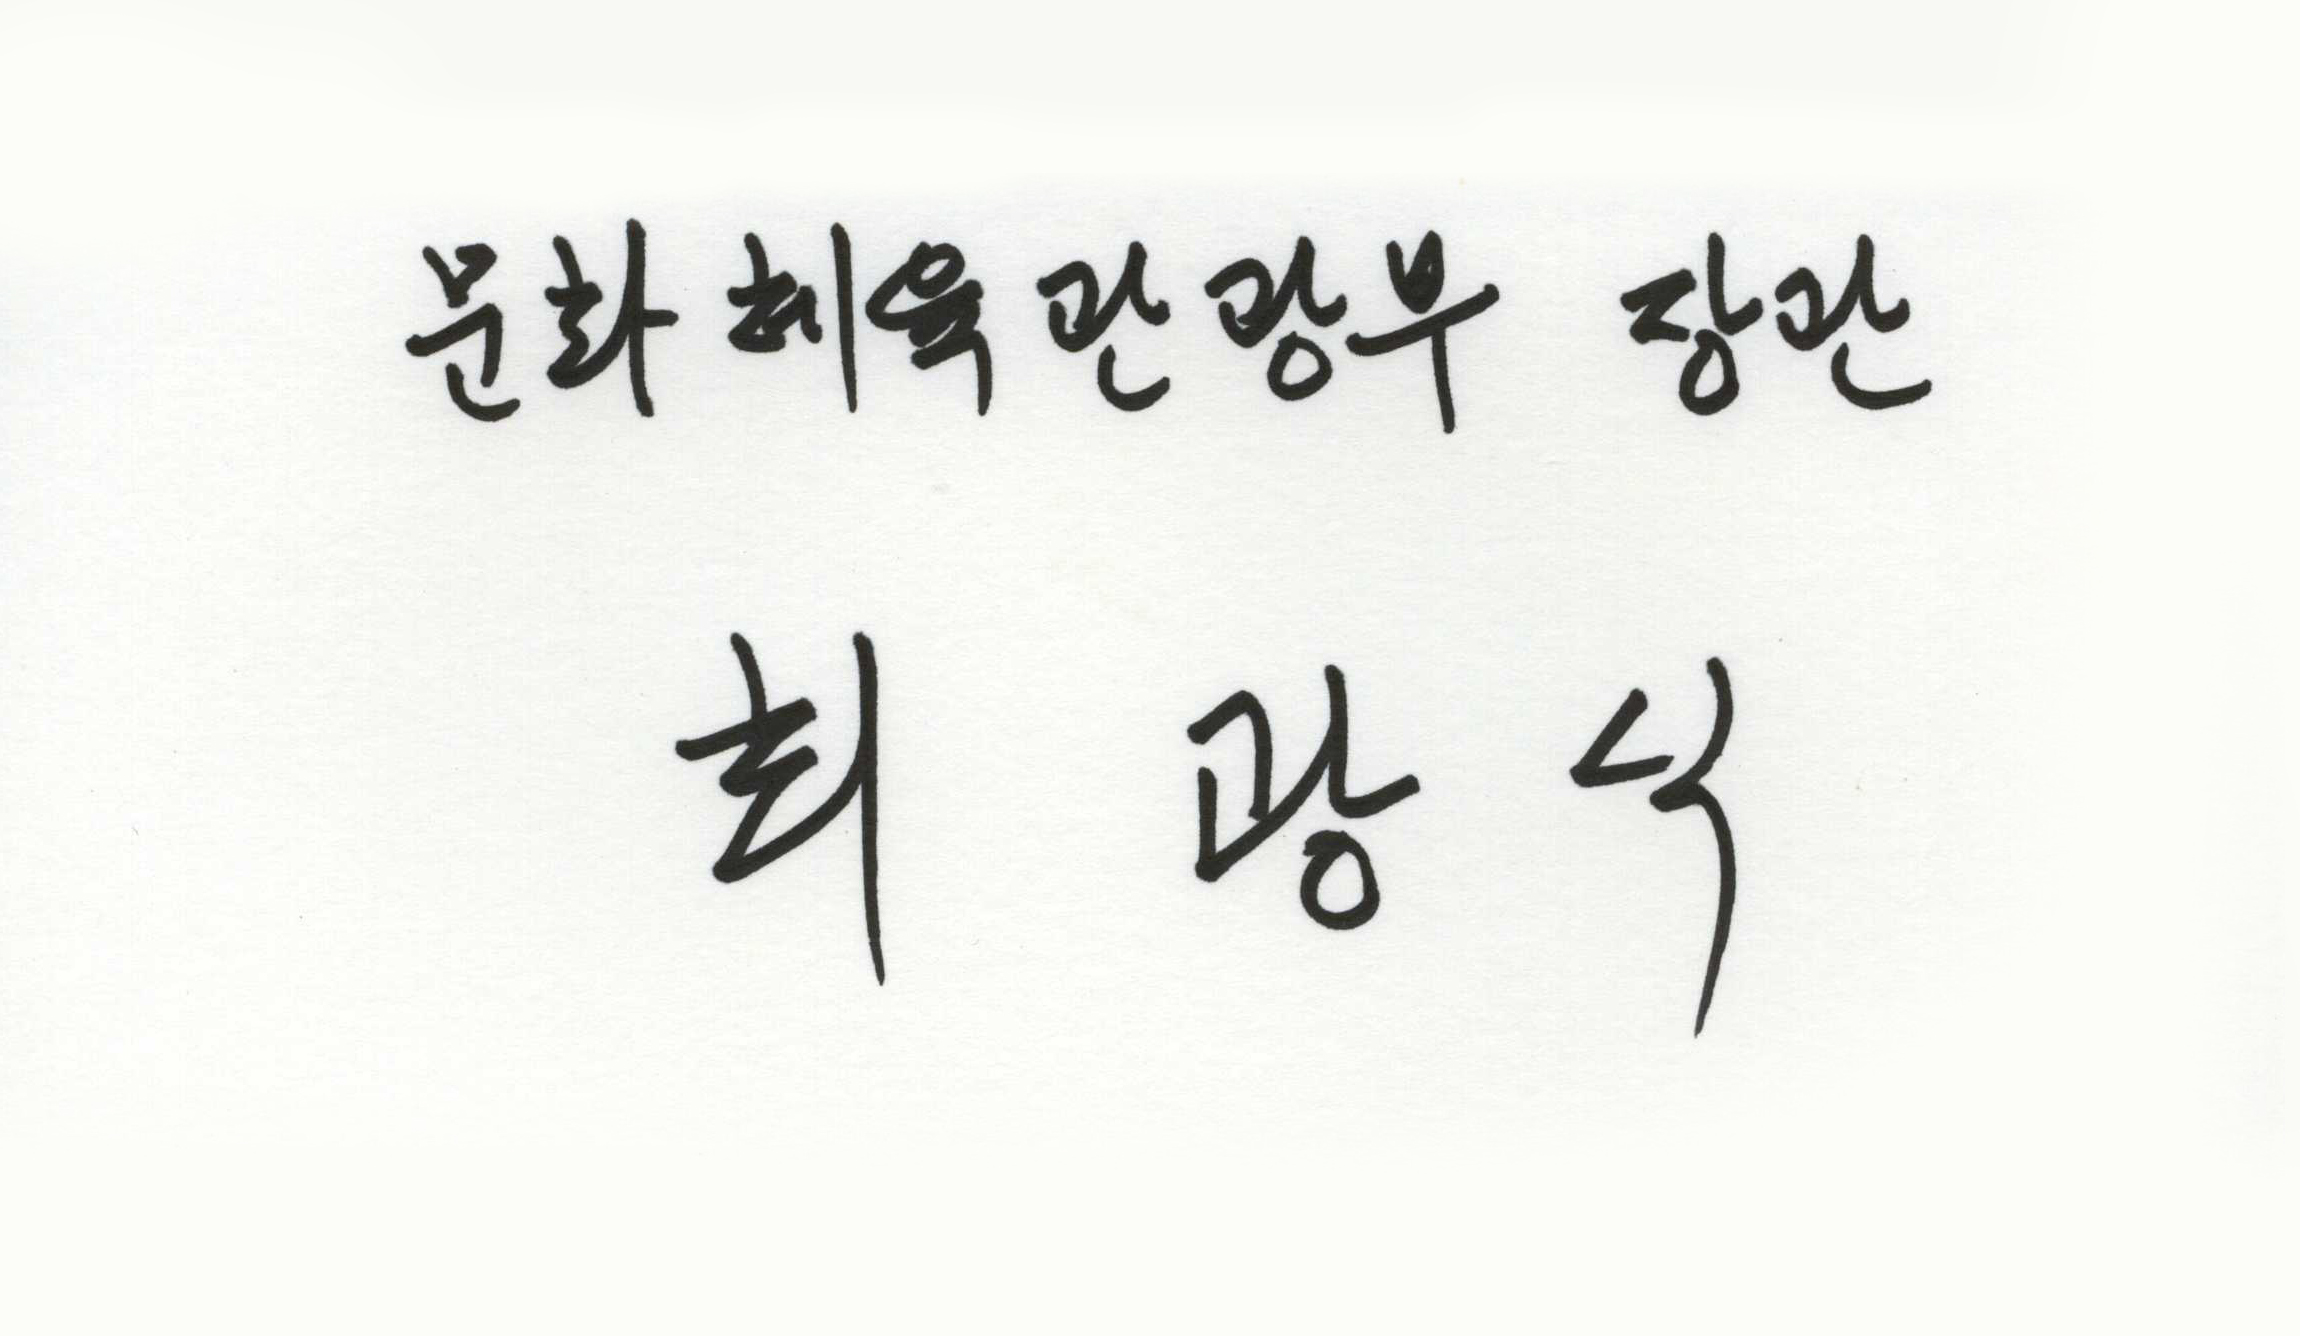 문화체육관광부 장관
최광식